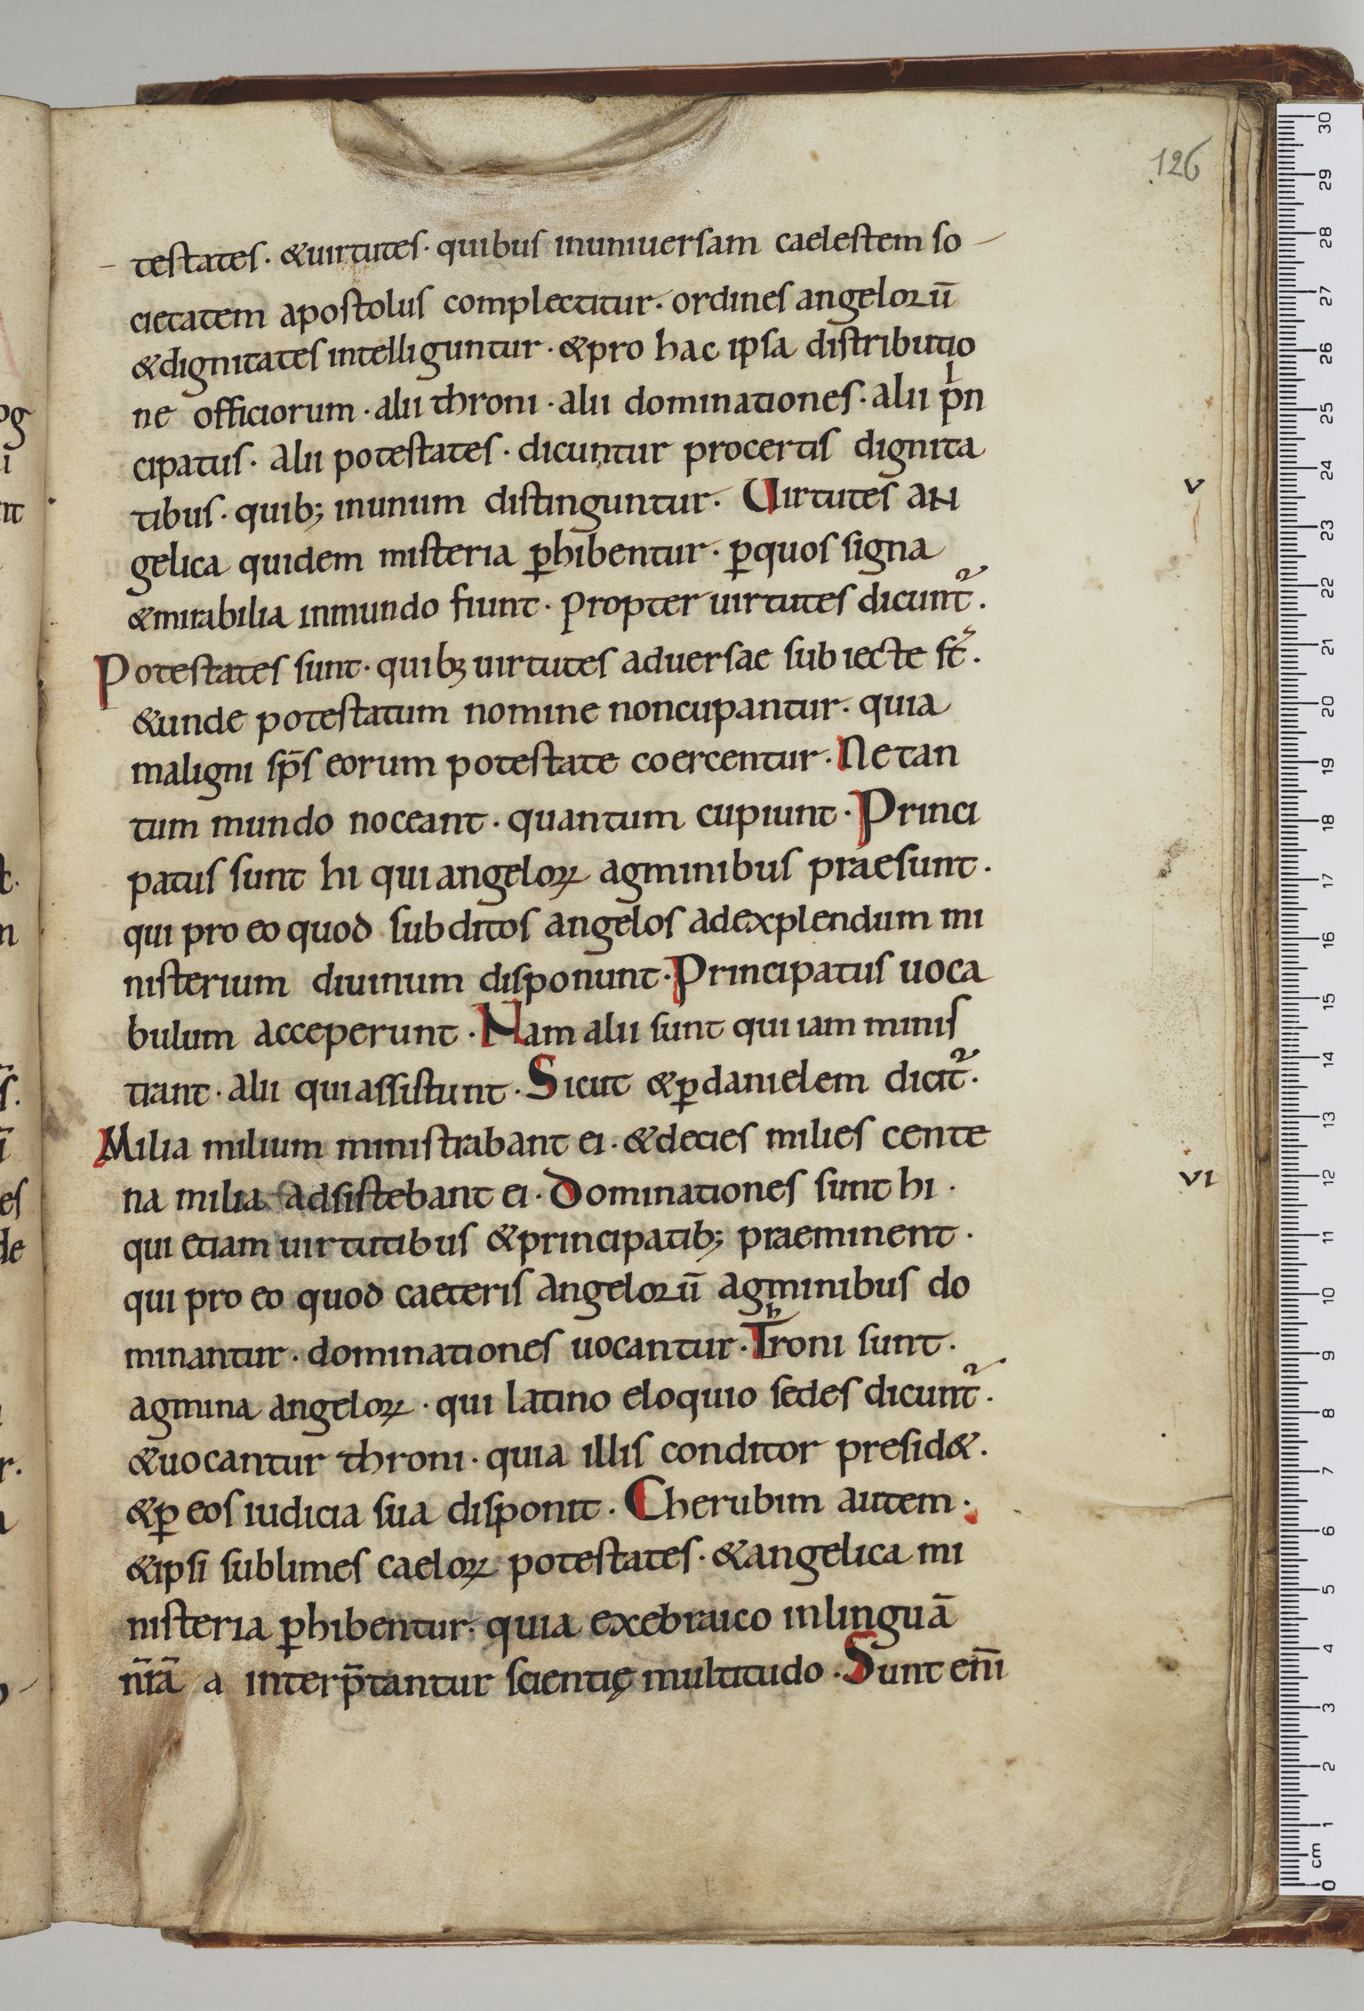 126
testates. &uirtutes. quibus inuniuersam caelestem so
cietatem apostolus complectitur. ordines angeloꝝū
&dignitates intelliguntur. &pro hac ipsa distributio
ne officiorum. alii throni. alii dominationes. alii pⁱn
cipatus. alii potestates. dicuntur procertis dignita
tibus. quib; inunum distinguntur. Uirtutes an
v
gelica quidem misteria ꝑhibentur. ꝑquos signa
&mirabilia inmundo fiunt. propter uirtutes dicunt᷑.
Potestates sunt. quibꝫ uirtutes aduersae subiecte st̄.
&unde potestatum nomine noncupantur. quia
maligni sp̄s eorum potestate coercentur. Ne tan
tum mundo noceant. quantum cupiunt. Princi
patus sunt hi qui angeloꝝ agminibus praesunt.
qui pro eo quod subditos angelos adexplendum mi
nisterium diuinum disponunt. Principatus uoca
bulum acceperunt. Nam alii sunt qui iam minis
trant. alii qui assistunt. Sicut &ꝑdanielem dicit᷑.
Milia milium ministrabant ei. &decies milies cente
na milia adsistebant ei. Dominationes sunt hi.
vi
qui etiam uirtutibus &principatib; praeminent.
qui pro eo quod caeteris angelorū agminibus do
minantur. dominationes uocantur. Tʰroni sunt.
agmina angeloꝝ. qui latino eloquio sedes dicunt᷑.
&uocantur throni. quia illis conditor presid&.
&ꝑ eos iudicia sua disponit. Cherubim autem.
&ipsi sublimes caeloꝝ potestates. &angelica mi
nisteria ꝑhibentur. quia exebraico inlinguā
nr̄ā a interp̄tantur scientię multitudo. Sunt en̄i